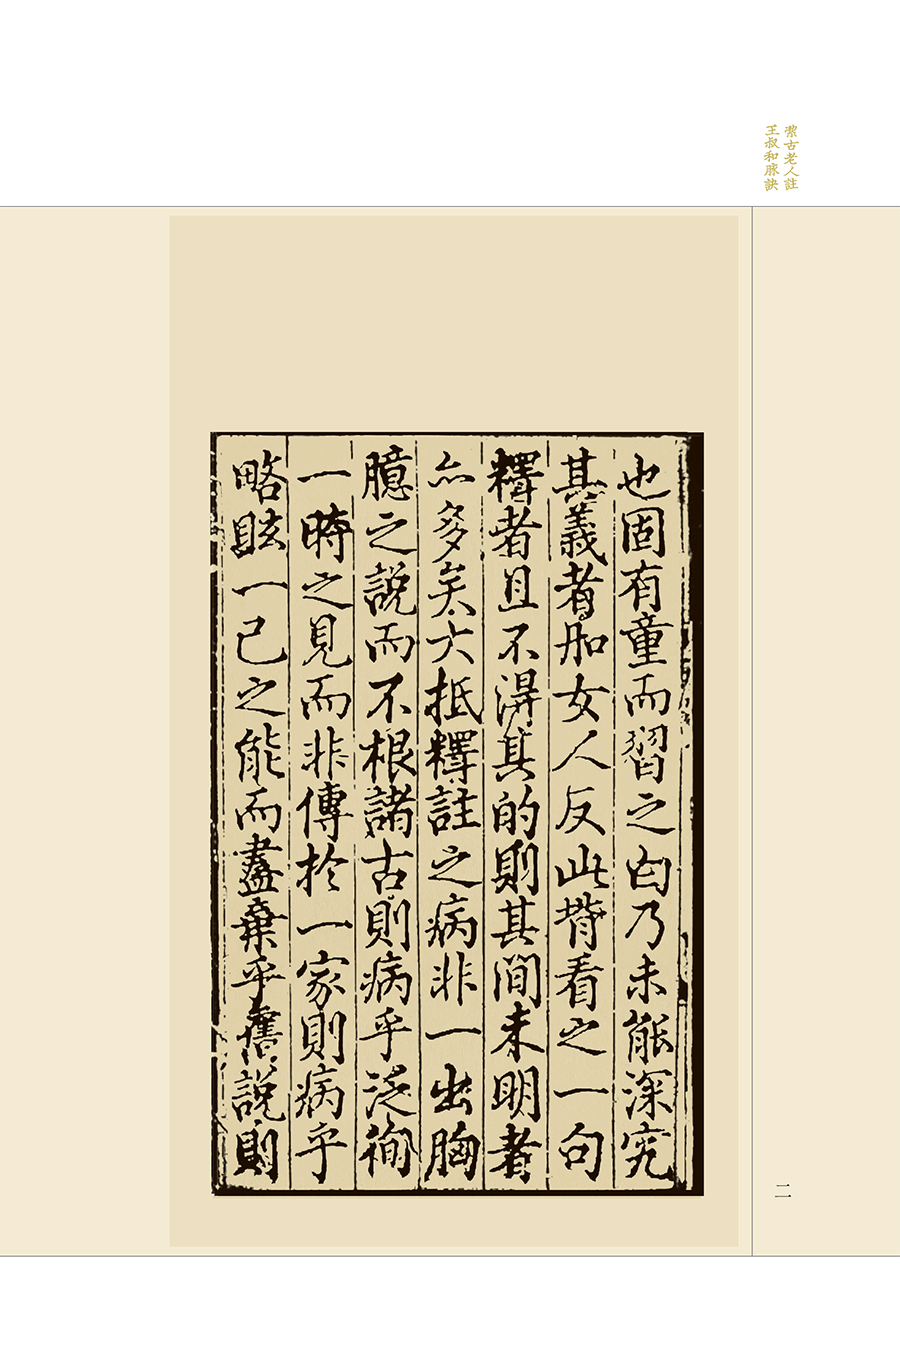 絜古老人註
王叔和脉訣
也固有童而習之白乃未能深究
其義者如女人反此背看之一句
釋者且不得其的則其間未明者
亦多矣大抵釋註之病非一出胸
臆之說而不根諸古則病乎泛徇
一時之見而非傳於一家則病乎
略眩一己之能而盡棄乎舊說則
二